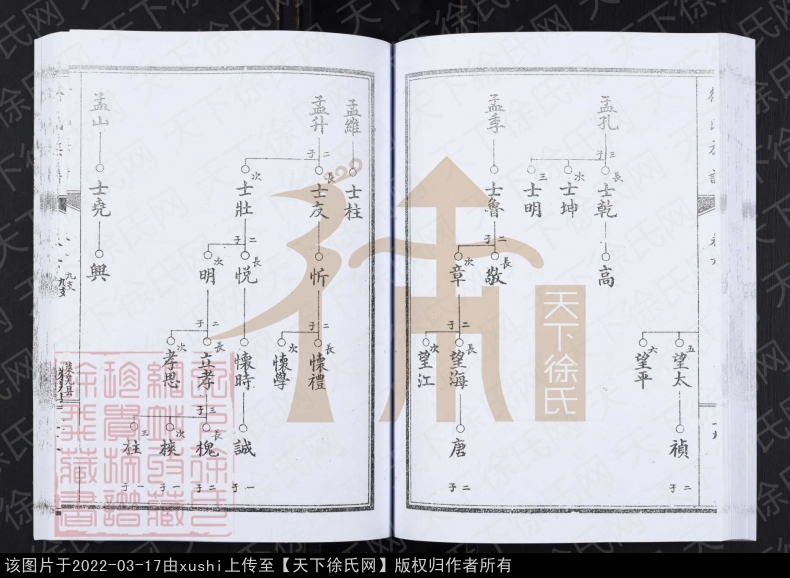 孟孔
三子
長 士乾
次 士坤
三 士明
高
五 望太
六 望平
禎
二子
孟季
士魯
二子
長 敬
次 章
二子
長 望海
次 望江
唐
二子
孟維
士柱
孟升
二子
長 士友
次 士壯
忻
二子
長 懷禮
次 懷學
二子
長 悦
次 明
懷時
誠
一子
二子
長 立孝
次 孝思
三子
長 槐
次
三 柱
二子
一子
一子
孟山
士堯
興
九支
九支
天下徐氏
天下徐氏网
该图片于2022-03-17由xushi上传至【天下徐氏网】版权归作者所有